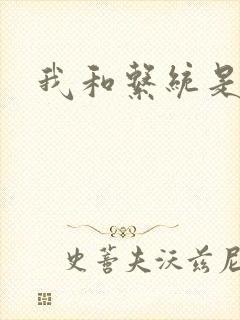 我和繫統是
史蒂夫沃兹尼